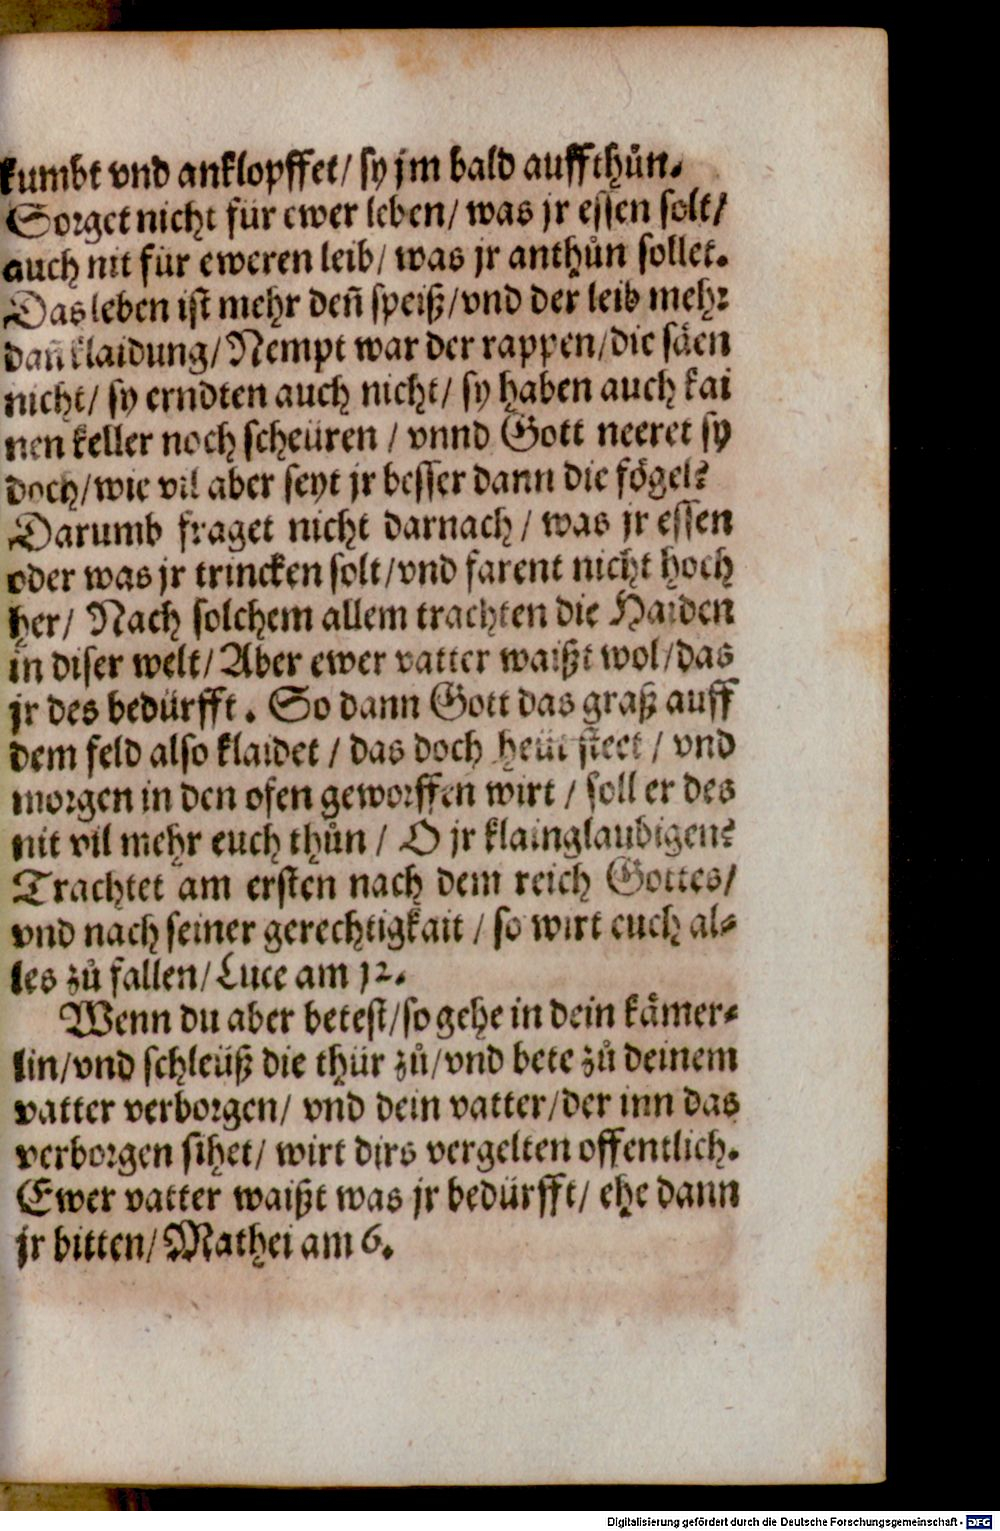 kumbt vnd anklopffet/ sy jm bald auffthůn.
Sorget nicht für ewer leben/ was jr essen solt/
auch nit für eweren leib/ was jr anthůn sollet.
Das leben ist mehr deñ speiß/vnd der leib mehr
dañ klaidung/Nempt war der rappen/die säen
nicht/ sy erndten auch nicht/ sy haben auch kai
nen keller noch scheüren / vnnd Gott neeret sy
doch/wie vil aber seyt jr besser dann die fögel?
Darumb fraget nicht darnach / was jr essen
oder was jr trincken solt/vnd farent nicht hoch
her/ Nach solchem allem trachten die Haiden
in diser welt/Aber ewer vatter waißt wol/das
jr des bedürfft. So dann Gott das graß auff
dem feld also klaidet / das doch heüt steet / vnd
morgen in den ofen geworffen wirt / soll er des
nit vil mehr euch thůn / O jr klainglaubigen?
Trachtet am ersten nach dem reich Gottes/
vnd nach seiner gerechtigkait / so wirt euch al-
les zů fallen/Luce am 12.
Wenn du aber betest/so gehe in dein kämer-
lin/vnd schleüß die thür zů/vnd bete zů deinem
vatter verborgen/ vnd dein vatter/der inn das
verborgen sihet/ wirt dirs vergelten offentlich.
Ewer vatter waißt was jr bedürfft/ ehe dann
jr bitten/Mathei am 6.
Digitalisierung gefördert durch die Deutsche Forschungsgemeinschaft - DFG